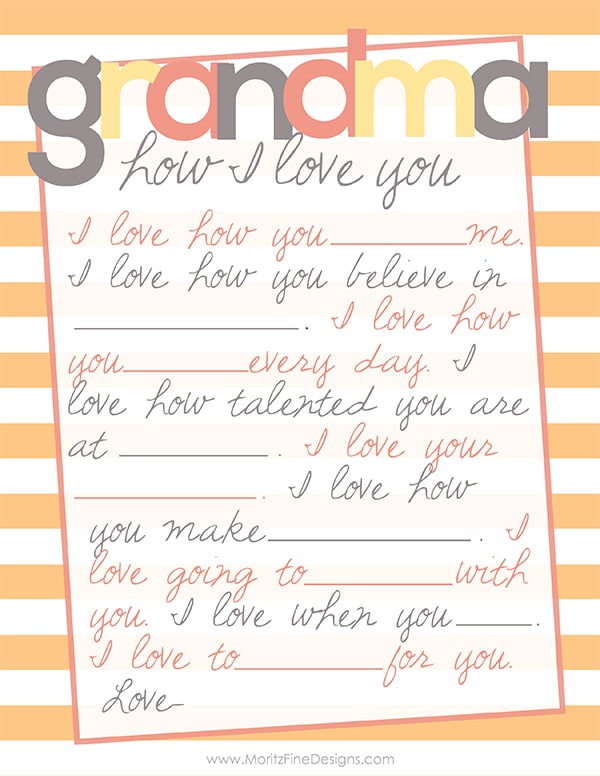 grandma
how I love you
I love how you__________me.
I love how you believe in
__________________. I love how
you__________every day. I
love how talented you are
at ____________. I love your
_______________. I love how
you make________________. I
love going to____________with
you. I love when you______.
I love to____________for you.
Love
www.MoritzFineDesigns.com